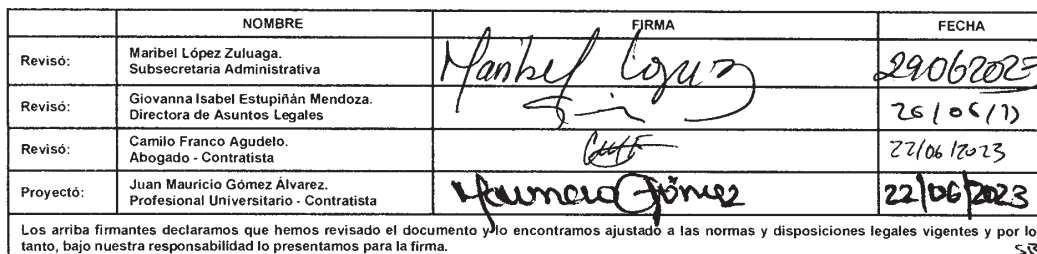 NOMBRE FIRMA FECHA
Revisó: Maribel López Zuluaga. Subsecretaria Administrativa Maribel López 29062023
Revisó: Giovanna Isabel Estupiñán Mendoza. Directora de Asuntos Legales 26/06/
Revisó: Camilo Franco Agudelo. Abogado - Contratista 22/06/2023
Proyectó: Juan Mauricio Gómez Álvarez. Profesional Universitario - Contratista Mauricio Gómez 22/06/2023
Los arriba firmantes declaramos que hemos revisado el documento y lo encontramos ajustado a las normas y disposiciones legales vigentes y por lo
tanto, bajo nuestra responsabilidad lo presentamos para la firma.